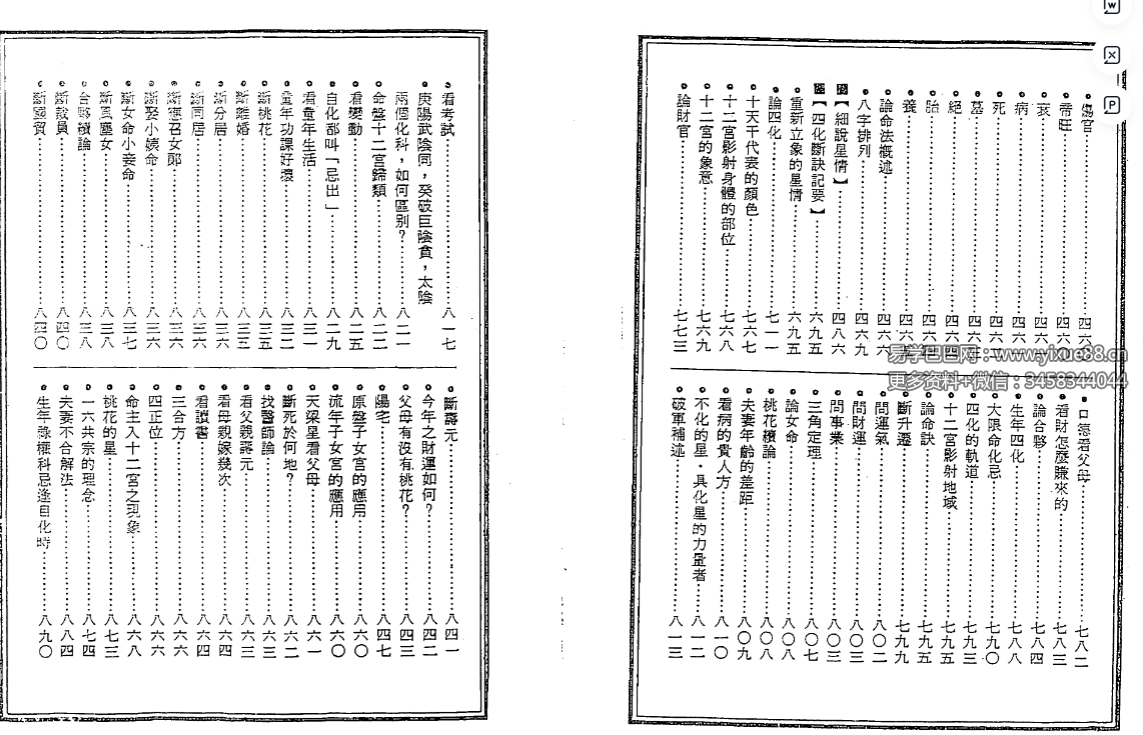 傷官⋯⋯四六
帝旺⋯⋯四六〇
衰⋯⋯四六
病⋯⋯四六
死⋯⋯四六
墓⋯⋯四六
絕⋯⋯四六四
胎⋯⋯四六四
養⋯⋯四六
論命法概述⋯⋯四六六
八字排列⋯⋯四六九
【細說星情】⋯⋯四八六
【四化斷訣記要】⋯⋯六九五
重新立象的星情⋯⋯六九五
論四化⋯⋯七一一
十天干代表的顏色⋯⋯七六七
十二宮影射身體的部位⋯⋯七六八
十二宮的象意⋯⋯七六九
論財官⋯⋯七七三
口德看父母⋯⋯七八二
看財怎麼賺來的⋯⋯七八三
論合夥⋯⋯七八四
生年四化⋯⋯七八八
大限命化忌⋯⋯七九〇
四化的軌道⋯⋯七九三
十二宮影射地域⋯⋯七九五
論命訣⋯⋯七九五
斷升遷⋯⋯七九九
問運氣⋯⋯八〇二
問財運⋯⋯八〇三
問事業⋯⋯八〇三
三角定理⋯⋯八〇七
論女命⋯⋯八〇八
桃花續論⋯⋯八〇八
夫妻年齡的差距⋯⋯八〇九
看病的貴人方⋯⋯八一〇
不化的星·具化星的力量者⋯⋯八一二
破軍補述⋯⋯八一三
看考試⋯⋯八一七
庚陽武陰同，癸破巨陰貪，太陰
兩個化科，如何區別？⋯⋯八二一
命盤十二宮歸類⋯⋯八二二
看變動⋯⋯八二五
自化都叫「忌出」⋯⋯八二九
看童年生活⋯⋯八三一
童年功課好壞⋯⋯八三二
斷桃花⋯⋯八三五
斷離婚⋯⋯八三五
斷分居⋯⋯八三六
斷同居⋯⋯八三六
斷應召女郎⋯⋯八三六
斷娶小姨命⋯⋯八三六
斷女命小妾命⋯⋯八三七
斷風塵女⋯⋯八三八
合夥續論⋯⋯八三八
斷議員⋯⋯八四〇
斷國貿⋯⋯八四〇
斷壽元⋯⋯八四一
今年之財運如何？⋯⋯八四二
父母有沒有桃花？⋯⋯八四三
陽宅⋯⋯八四七
原盤子女宮的應用⋯⋯八六〇
流年子女宮的應用⋯⋯八六〇
天梁星看父母⋯⋯八六一
斷死於何地？⋯⋯八六二
找醫師論⋯⋯八六三
看父親壽元⋯⋯八六三
看母親嫁幾次⋯⋯八六四
看讀書⋯⋯八六四
三合方⋯⋯八六六
四正位⋯⋯八六六
命主入十二宮之現象⋯⋯八六八
桃花的星⋯⋯八七三
一六共宗的理念⋯⋯八七四
夫妻不合解法⋯⋯八八四
生年祿權科忌逢自化時⋯⋯八九〇
易学巴巴网：www.yixue88.cn
更多资料+微信：3458344044
W
X
P